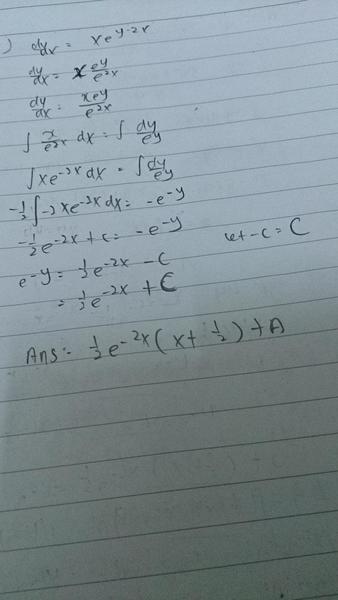 ) dy/dx = xe^{y-2x}
dy/dx = x e^y/e^{2x}
dy/dx = xe^y/e^{2x}
∫ x/e^{2x} dx = ∫ dy/e^y
∫ xe^{-2x} dx = ∫ dy/e^y
-1/2 ∫ -2xe^{-2x} dx = -e^{-y}
-1/2 e^{-2x} + c = -e^{-y}
let -c = C
e^{-y} = 1/2 e^{-2x} - c
= 1/2 e^{-2x} + C
Ans:- 1/2 e^{-2x} (x + 1/2) + A